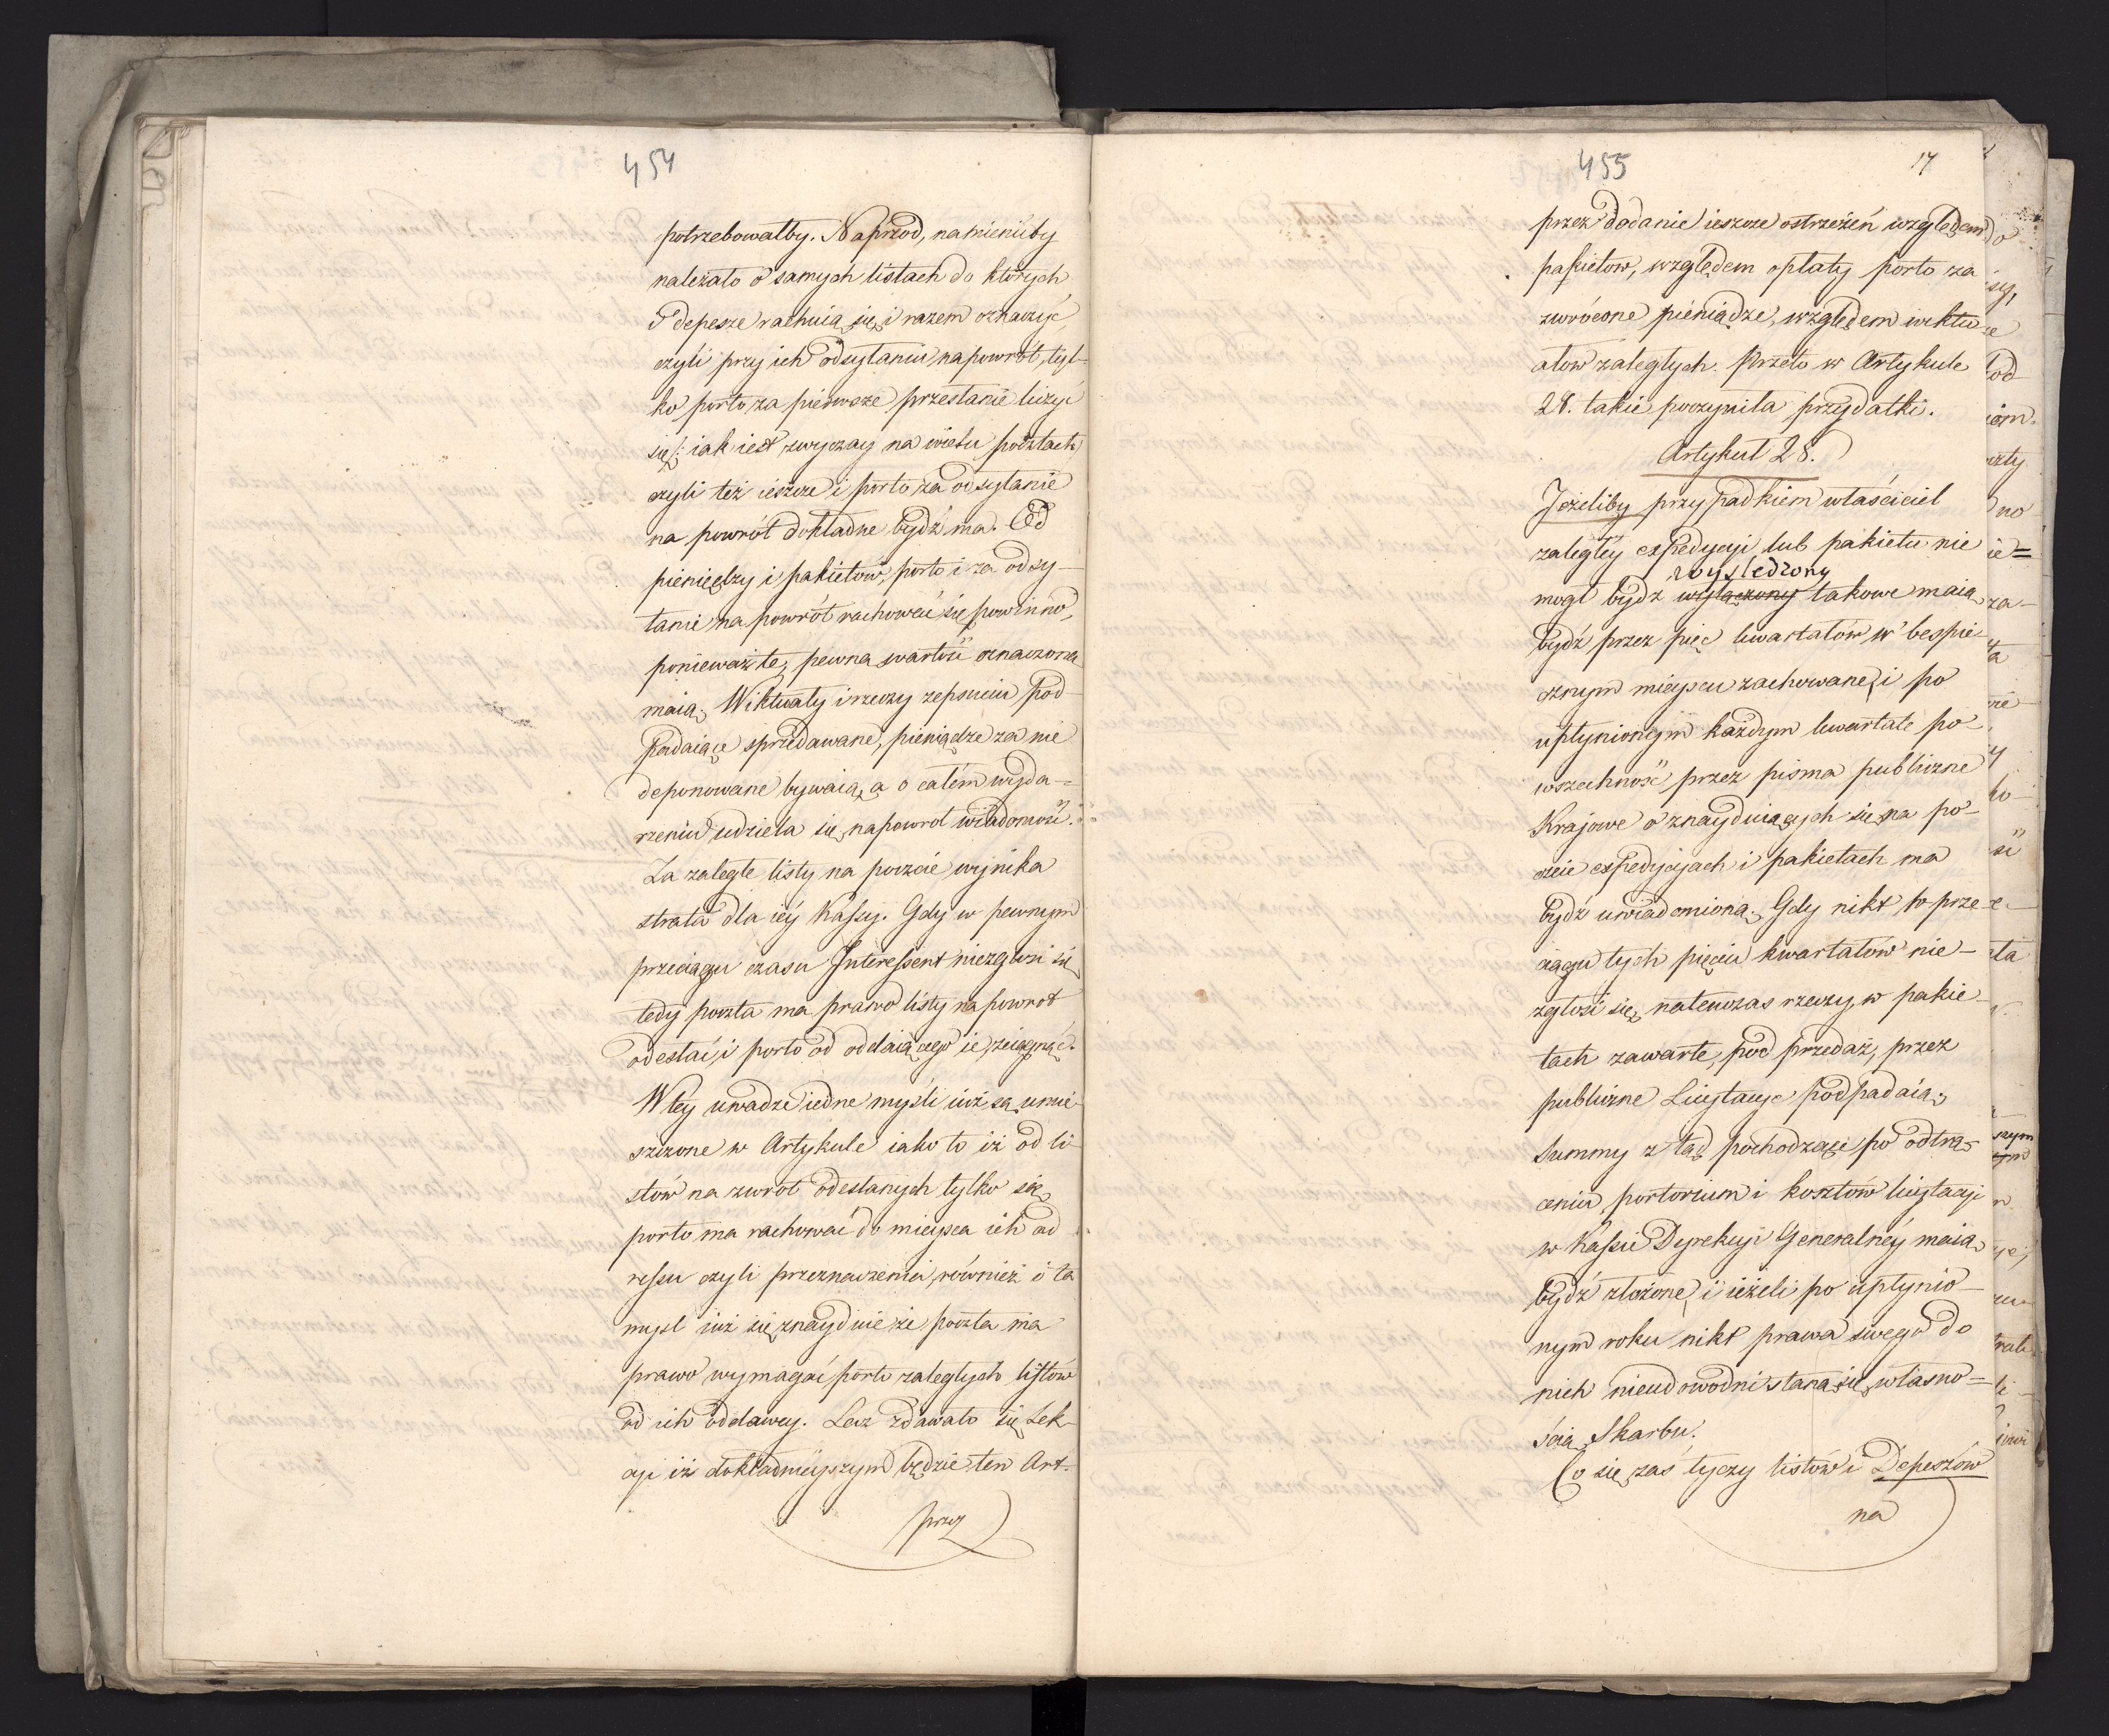 454
potrzebowałby. Naprzód, namienićby
należało o samych listach do których
i depesze rachuią się, i razem oznaczyć,
czyli przy ich odsyłaniu na powrót, tyl-
ko porto za pierwsze przesłanie liczyć
się /: iak iest zwyczay na wielu pocztach
czyli też ieszcze i porto za odsyłanie
na powrót dokładne bydź ma. Od
pieniędzy i pakietów, porto i za odsy-
łanie na powrót rachować się powinno,
ponieważ te, pewna wartość oznaczona
maią. Wiktuały i rzeczy zepsuciu pod-
padaiące sprzedawane, pieniądze za nie
deponowane bywaią, a o całém wyda-
rzeniu udziela się na powrot wiadomość.
Za zaległe listy na poczcie wynika
strata dla iéy Kassy. Gdy w pewnym
przeciągu czasu Interessent niezgłosi się
tedy poczta ma prawo listy na powrot
odesłać, i porto od oddaiącego ie, ściągnąć.
W tey uwadze iedne myśli iuż są umie-
szczone w Artykule iako to iż od li-
stów na zwrot odesłanych tylko się
porto ma rachować do mieysca ich ad-
ressu czyli przeznaczenia, również i ta
mysl iuż się znayduie że poczta ma
prawo wymagać porto zaległych listów
od ich oddawcy. Lecz zdawało się Sek-
cyi iż dokładnieyszym będzie ten Art.
przez
455
17
przez dodanie ieszcze ostrzeżeń względem
pakietow, względem opłaty porto za
zwrócone pieniądze, względem wiktu-
ałow zaległych. Przeto w Artykule
28. takie poczyniła przydatki.
Artykuł 28.
Jeżeliby przypadkiem właściciel
zaległéy expedycyi, lub pakietu nie
wyśledzony
mogł bydź wyłączony takowe maią
bydź przez pięć kwartałów w bespie-
cznym mieyscu zachowane, i po
upłynionym każdym kwartale po-
wszechność przez pisma publiczne
Krajowe o znayduiących się na po-
czcie expedycyjach i pakietach ma
bydź uwiadomioną. Gdy nikt w prze-
ciągu tych pięciu kwartałów nie-
zgłosi się, natenczas rzeczy w pakie-
tach zawarte, pod przedaż, przez
publiczne Licytacye podpadaią,
Summy z tąd pochodzące po odtrą-
ceniu portorium i kosztów licytacyi
w Kassie Dyrekcyi Generalnéy maią
bydź złożone, i ieżeli po upłynio-
nym roku nikt prawa swego do
nich nieudowodni staną się własno=
ścią Skarbu.
Co się zaś tyczy listów i Depeszów
na